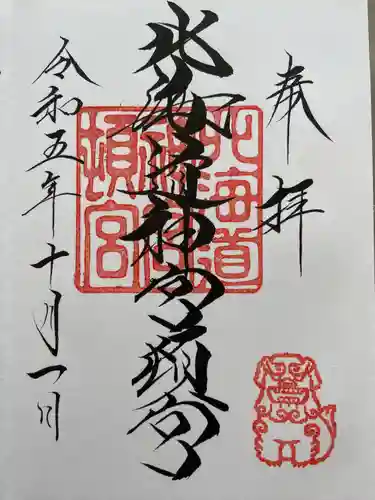 奉拝
北海道神宮頓宮
北海道神宮頓宮
令和五年十月一日